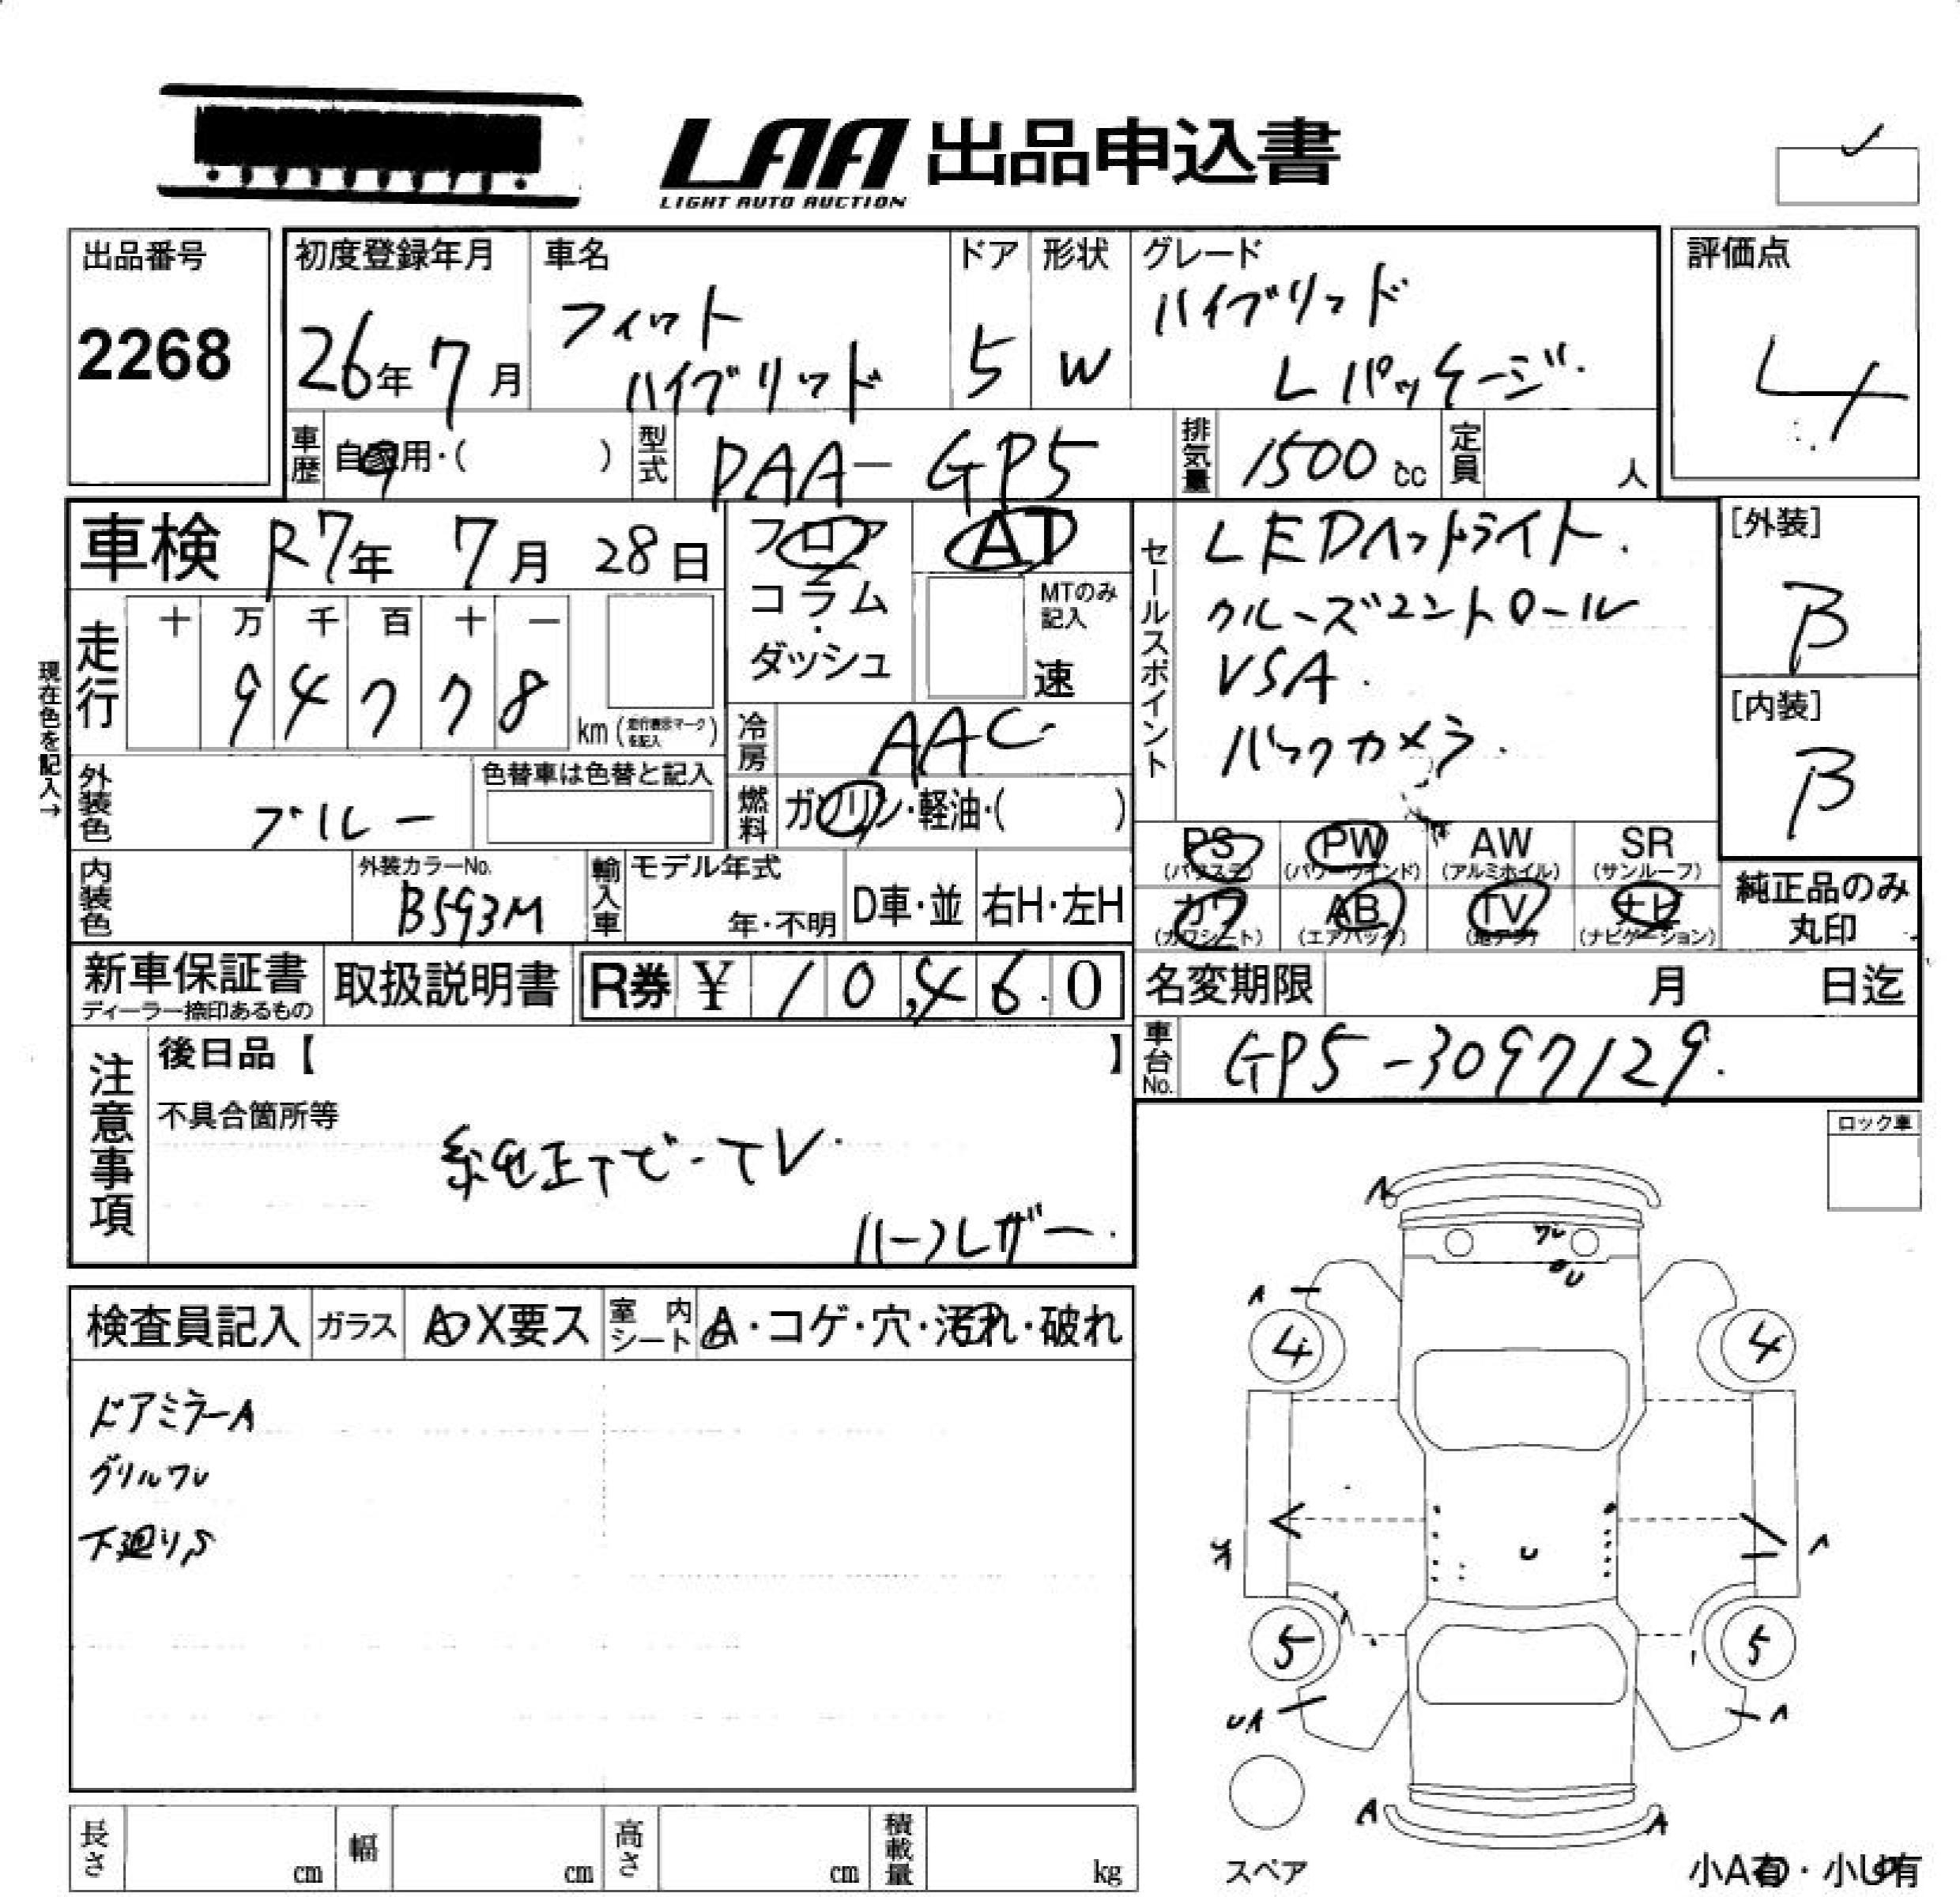 LAA 出品申込書
LIGHT AUTO AUCTION
出品番号
2268
初度登録年月
26年 7月
車名
フィット
ハイブリッド
ドア
5
形状
W
グレード
ハイブリッド
Lパッケージ.
評価点
4
車歴
自家用・( )
型式
DAA-GP5
排気量
1500 cc
定員
人
車検 R7年 7月 28日
フロア
コラム
・
ダッシュ
AT
MTのみ
記入
速
現在色を記入→
走行
十 万 千 百 十 一
9 4 7 7 8
km(走行表示マークを記入)
冷房
AAC
燃料
ガソリン・軽油・( )
外装色
ブルー
色替車は色替と記入
内装色
外装カラーNo.
B593M
輸入車
モデル年式
年・不明
D車・並
右H・左H
セールスポイント
LEDヘッドライト.
クルーズコントロール
VSA.
バックカメラ.
[外装]
B
[内装]
B
PS PW AW SR
(パワステ) (パワーウインド) (アルミホイル) (サンルーフ)
カワ AB TV ナビ
(カワシート) (エアバック) (地デジ) (ナビゲーション)
純正品のみ
丸印
新車保証書
ディーラー捺印あるもの
取扱説明書
R券 ¥ 10,460
名変期限 月 日迄
車台No.
GP5-3097129.
注意事項
後日品【 】
不具合箇所等
純正ナビ-TV.
ハーフレザー.
ロック車
検査員記入
ガラス
A・X要ス
室内シート
A・コゲ・穴・汚れ・破れ
ドアミラーA
グリルワレ
下廻りS
A
ワレ
U
A
4 4
U
A
5 5
UA
A
A
A
スペア
小A有・小U有
長さ
cm
幅
cm
高さ
cm
積載量
kg